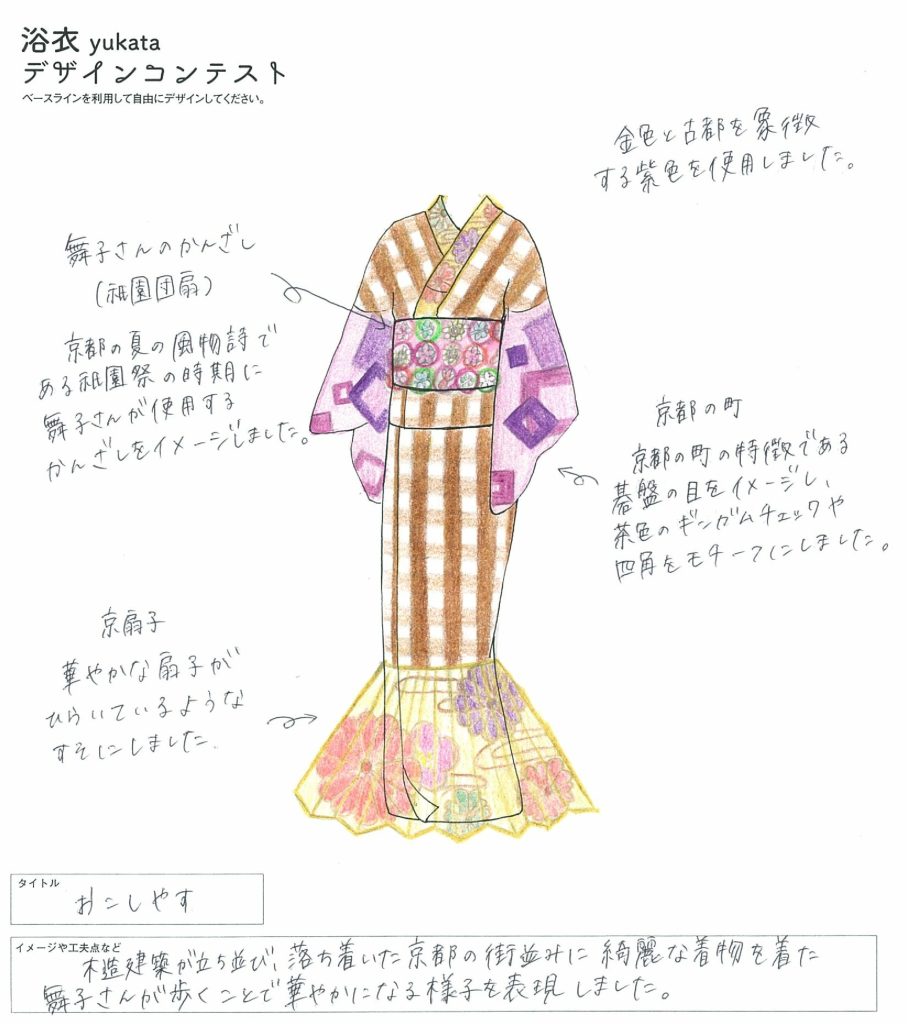 浴衣 yukata
デザインコンテスト
ベースラインを利用して自由にデザインしてください。
金色と古都を象徴
する紫色を使用しました。
舞子さんのかんざし
(祇園団扇)
京都の夏の風物詩で
ある祇園祭の時期に
舞子さんが使用する
かんざしをイメージしました。
京都の町
京都の町の特徴である
碁盤の目をイメージし、
茶色のギンガムチェックや
四角をモチーフにしました。
京扇子
華やかな扇子が
ひらいているような
すそにしました.
タイトル
おこしやす
イメージや工夫点など
木造建築が立ち並び、落ち着いた京都の街並みに綺麗な着物を着た
舞子さんが歩くことで華やかになる様子を表現しました。